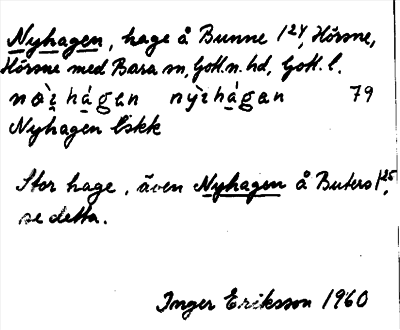 Nyhagen, hage å Bunne 1²⁴, Hörsne,
Hörsne med Bara sn, Gotl.n. hd, Gotl. l.
nỳi hágan 79
Nyhagen Ekk
Stor hage, även Nyhagen å Buters 1²⁵,
se detta.
Inger Eriksson 1960